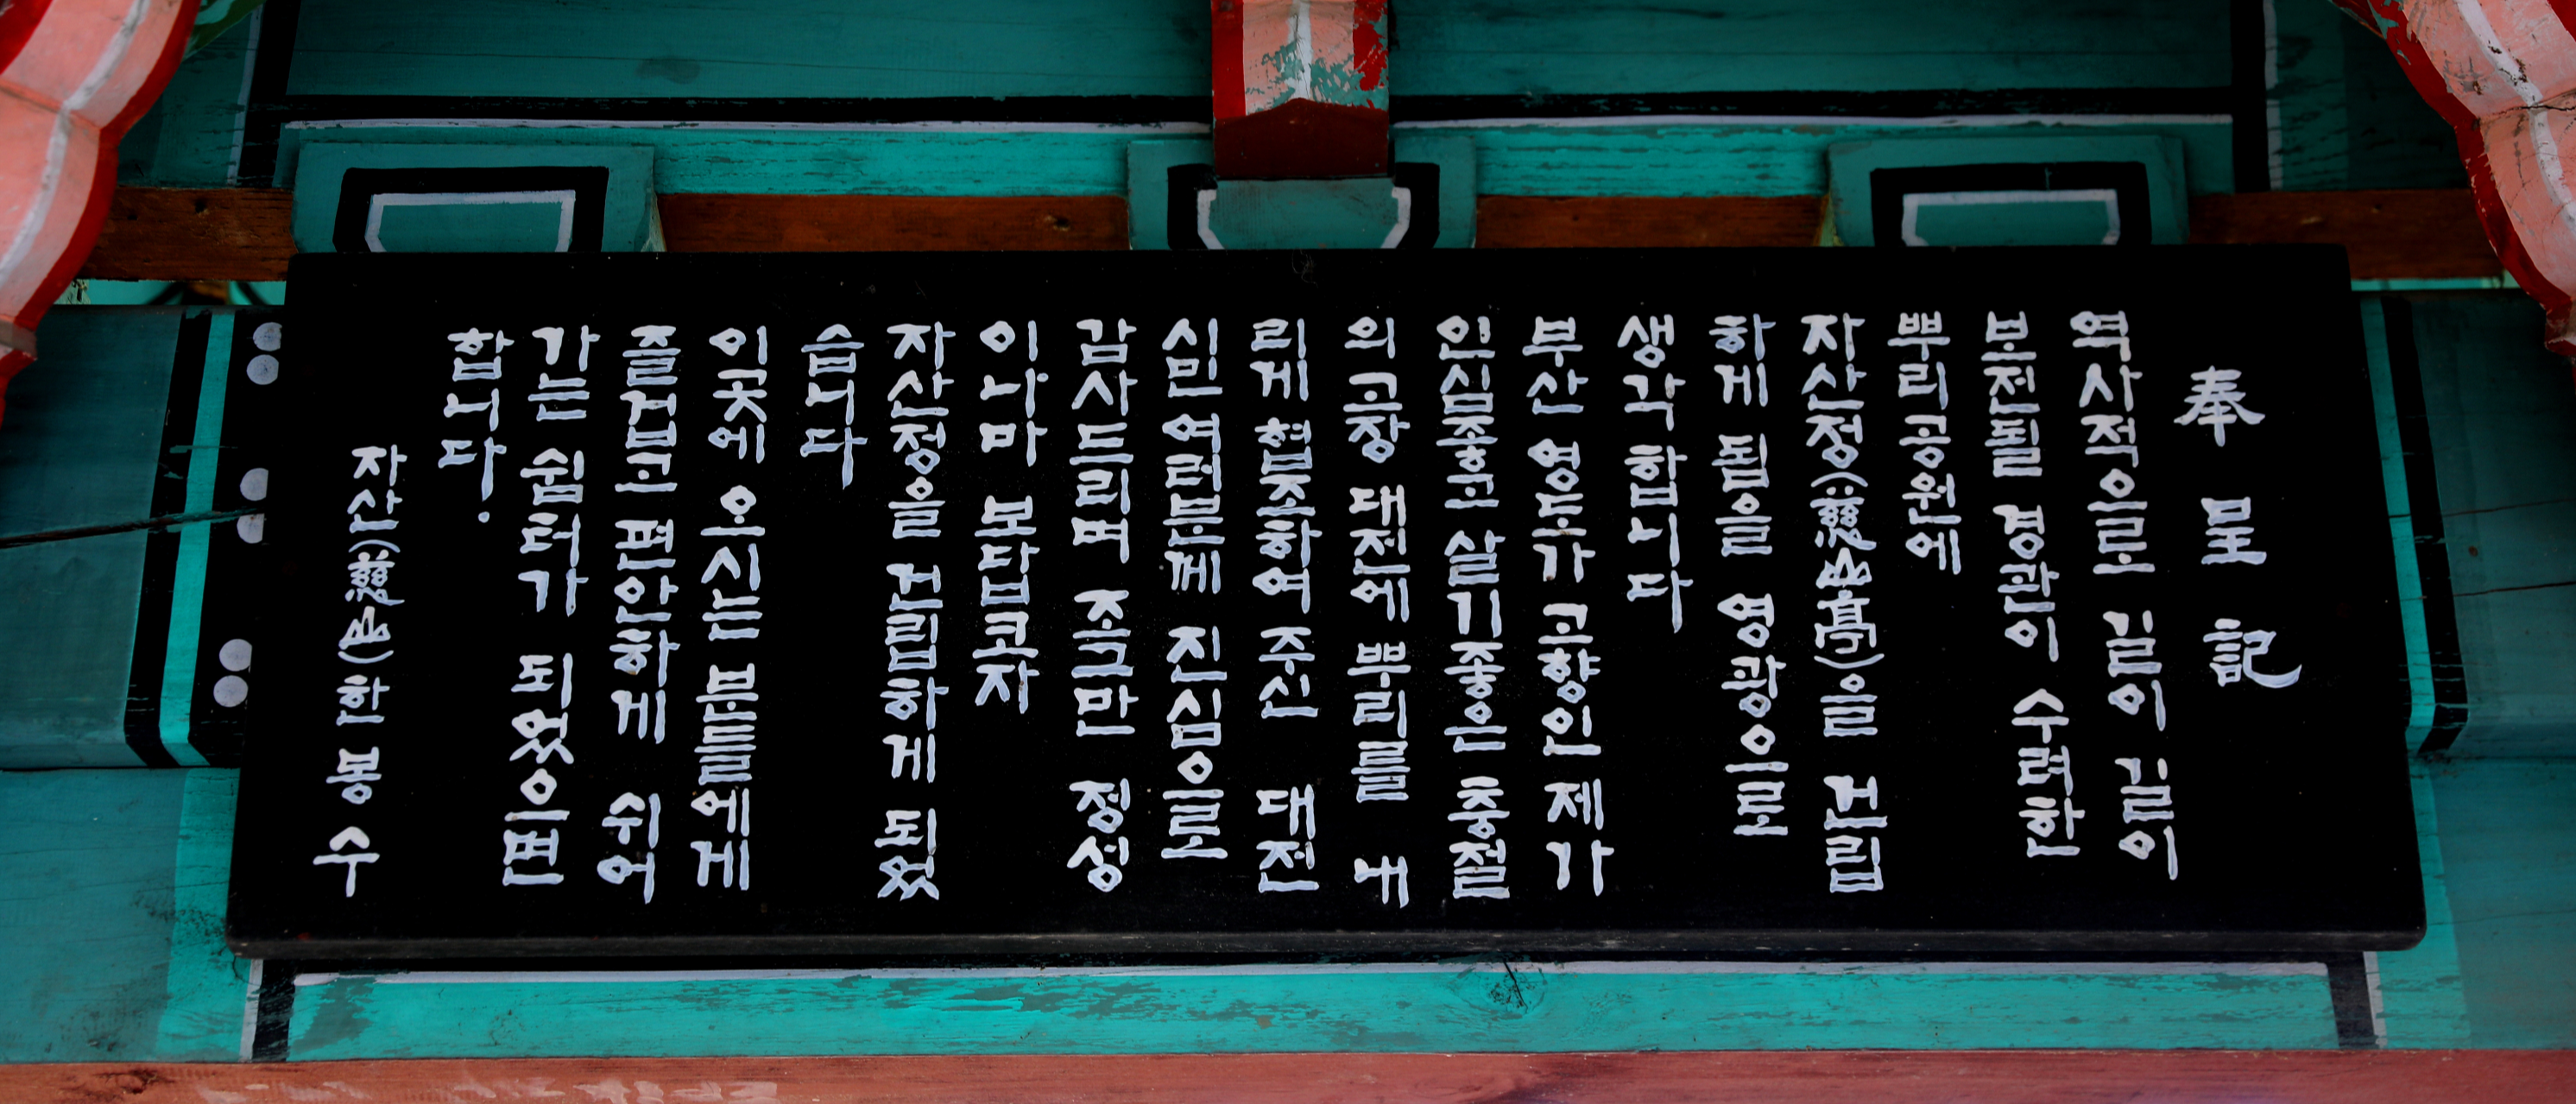 奉呈記
역사적으로 길이 길이
보전될 경관이 수려한
뿌리공원에
자산정(慈山亭)을 건립
하게 됨을 영광으로
생각 합니다
부산 영도가 고향인 제가
인심좋고 살기좋은 충절
의 고장 대전에 뿌리를 내
리게 협조하여 주신 대전
시민 여러분께 진심으로
감사드리며 조그만 정성
이나마 보답코자
자산정을 건립하게 되었
습니다
이곳에 오시는 분들에게
즐겁고 편안하게 쉬어
가는 쉼터가 되었으면
합니다.
자산(慈山)한봉수